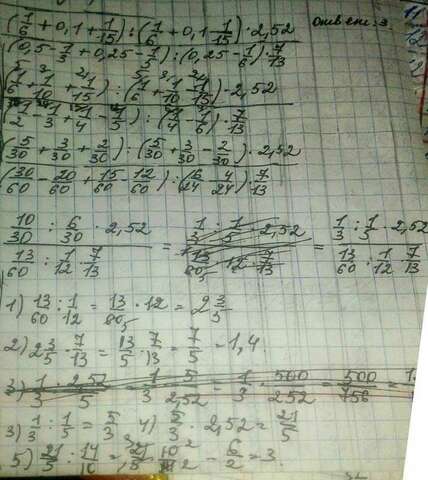 (1/6 + 0,1 + 1/15) : (1/6 + 0,1 - 1/15) · 2,52 ответ: 3.
(0,5 - 1/3 + 0,25 - 1/5) : (0,25 - 1/6) · 7/13
(1/6 + 1/10 + 1/15) : (1/6 + 1/10 - 1/15) · 2,52
(1/2 - 1/3 + 1/4 - 1/5) : (1/4 - 1/6) · 7/13
(5/30 + 3/30 + 2/30) : (5/30 + 3/30 - 2/30) · 2,52
(30/60 - 20/60 + 15/60 - 12/60) : (6/24 - 4/24) · 7/13
10/30 : 6/30 · 2,52 = 1/3 : 1/5 · 2,52 = 1/3 : 1/5 · 2,52
13/60 : 1/12 · 7/13 13/60 : 1/12 · 7/13 13/60 : 1/12 · 7/13
1) 13/60 : 1/12 = 13/60 · 12 = 2 3/5
2) 2 3/5 · 7/13 = 13/5 · 7/13 = 7/5 = 1,4
3) 1/3 : 1/5 = 5/3 4) 5/3 · 2,52 = 21/5
5) 21/5 : 14/10 = 21/5 · 10/14 = 6/2 = 3.